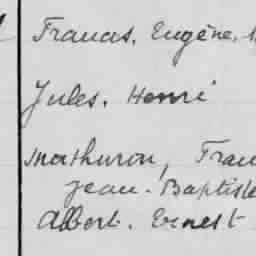 Francis, Eugène,
Jules, Henri
Mathurin, Fran
Jean-Baptiste
Albert, Ernest